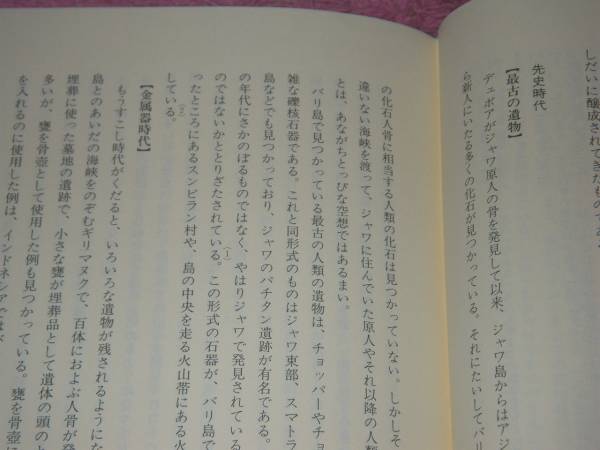 しだいに醸成されてきたものであ
先史時代
【最古の遺物】
デュボアがジャワ原人の骨を発見して以来、ジャワ島からはアジ
ら新人にいたる多くの化石が見つかっている。それにたいしてバリ
の化石人骨に相当する人類の化石は見つかっていない。しかしそ
違いない海峡を渡って、ジャワに住んでいた原人やそれ以降の人類
とは、あながちとっぴな空想ではあるまい。
バリ島で見つかっている最古の人類の遺物は、チョッパーやチョ
雑な礫核石器である。これと同形式のものはジャワ東部、スマトラ
島などでも見つかっており、ジャワのパチタン遺跡が有名である。
の年代にさかのぼるものではなく、やはりジャワで発見されている
のではないかととりざたされている。(1)この形式の石器が、バリ島で
ったところにあるスンビラン村や、島の中央を走る火山帯にある火
している。(2)
【金属器時代】
もうすこし時代がくだると、いろいろな遺物が残されるようにな
島とのあいだの海峡をのぞむギリマヌクで、百体におよぶ人骨が発
埋葬に使った墓地の遺跡で、小さな甕が埋葬品として遺体の頭の
多いが、甕を骨壺として使用した例も見つかっている。甕を骨壺に
を入れるのに使用した例は、インドネシアでは